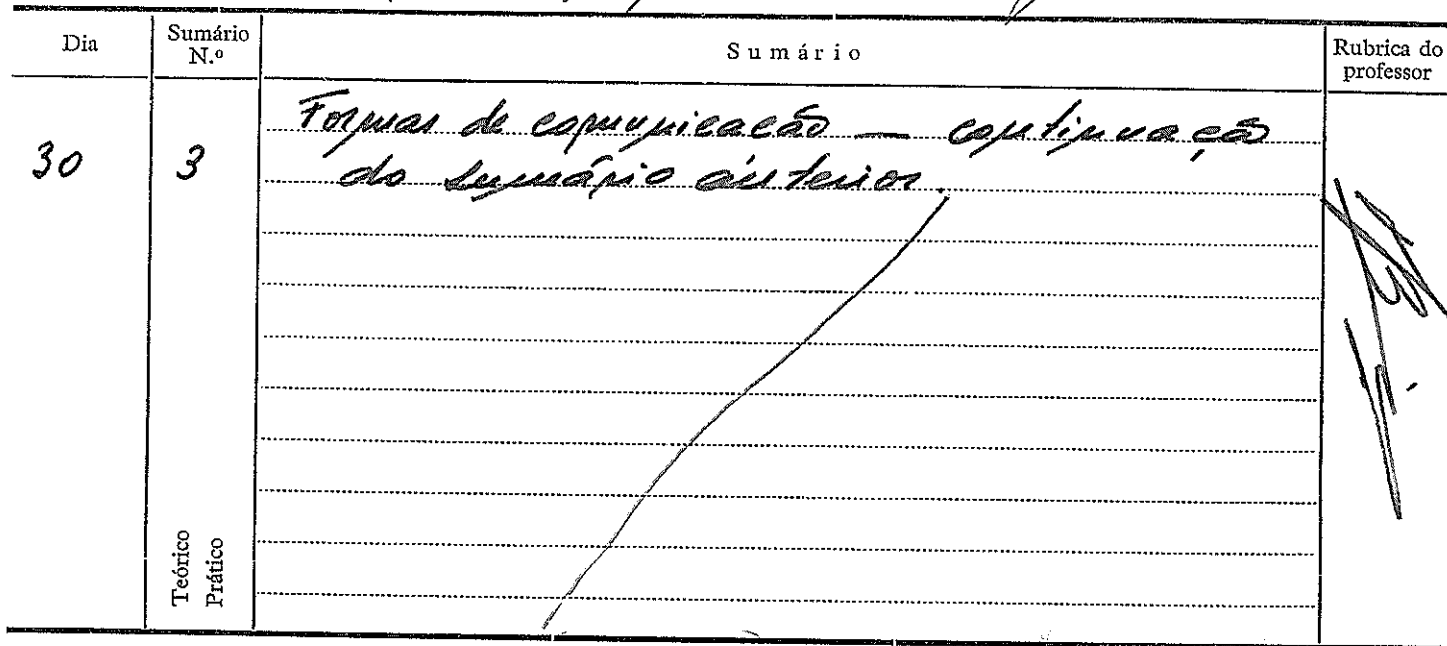 Dia
Sumário
N.º
Sumário
Rubrica do
professor
30
3
Formas de comunicação — continuação
do sumário anterior.
Teórico
Prático